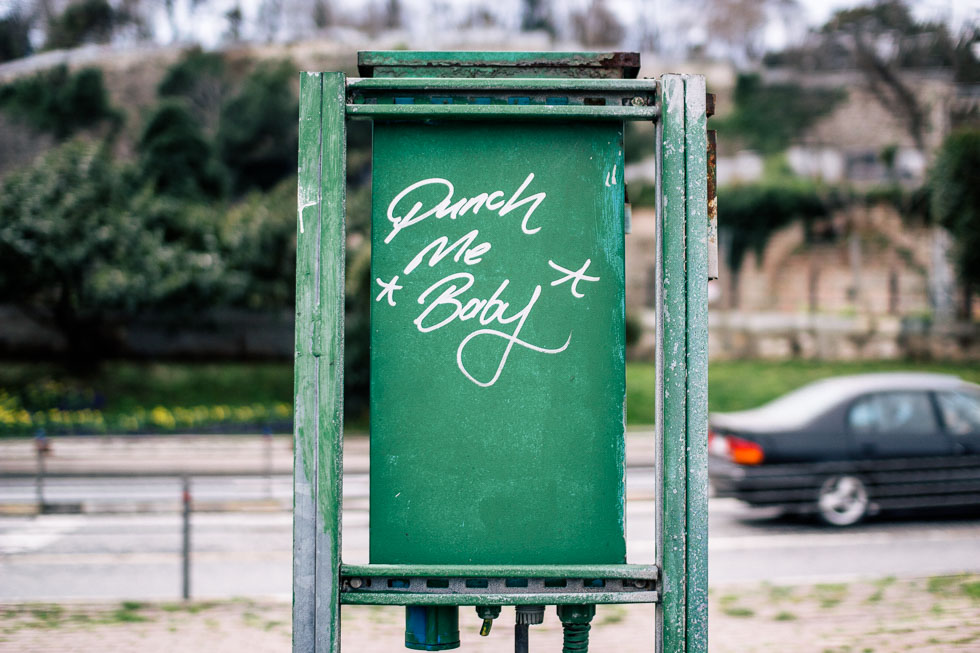 Punch
Me
* Baby *